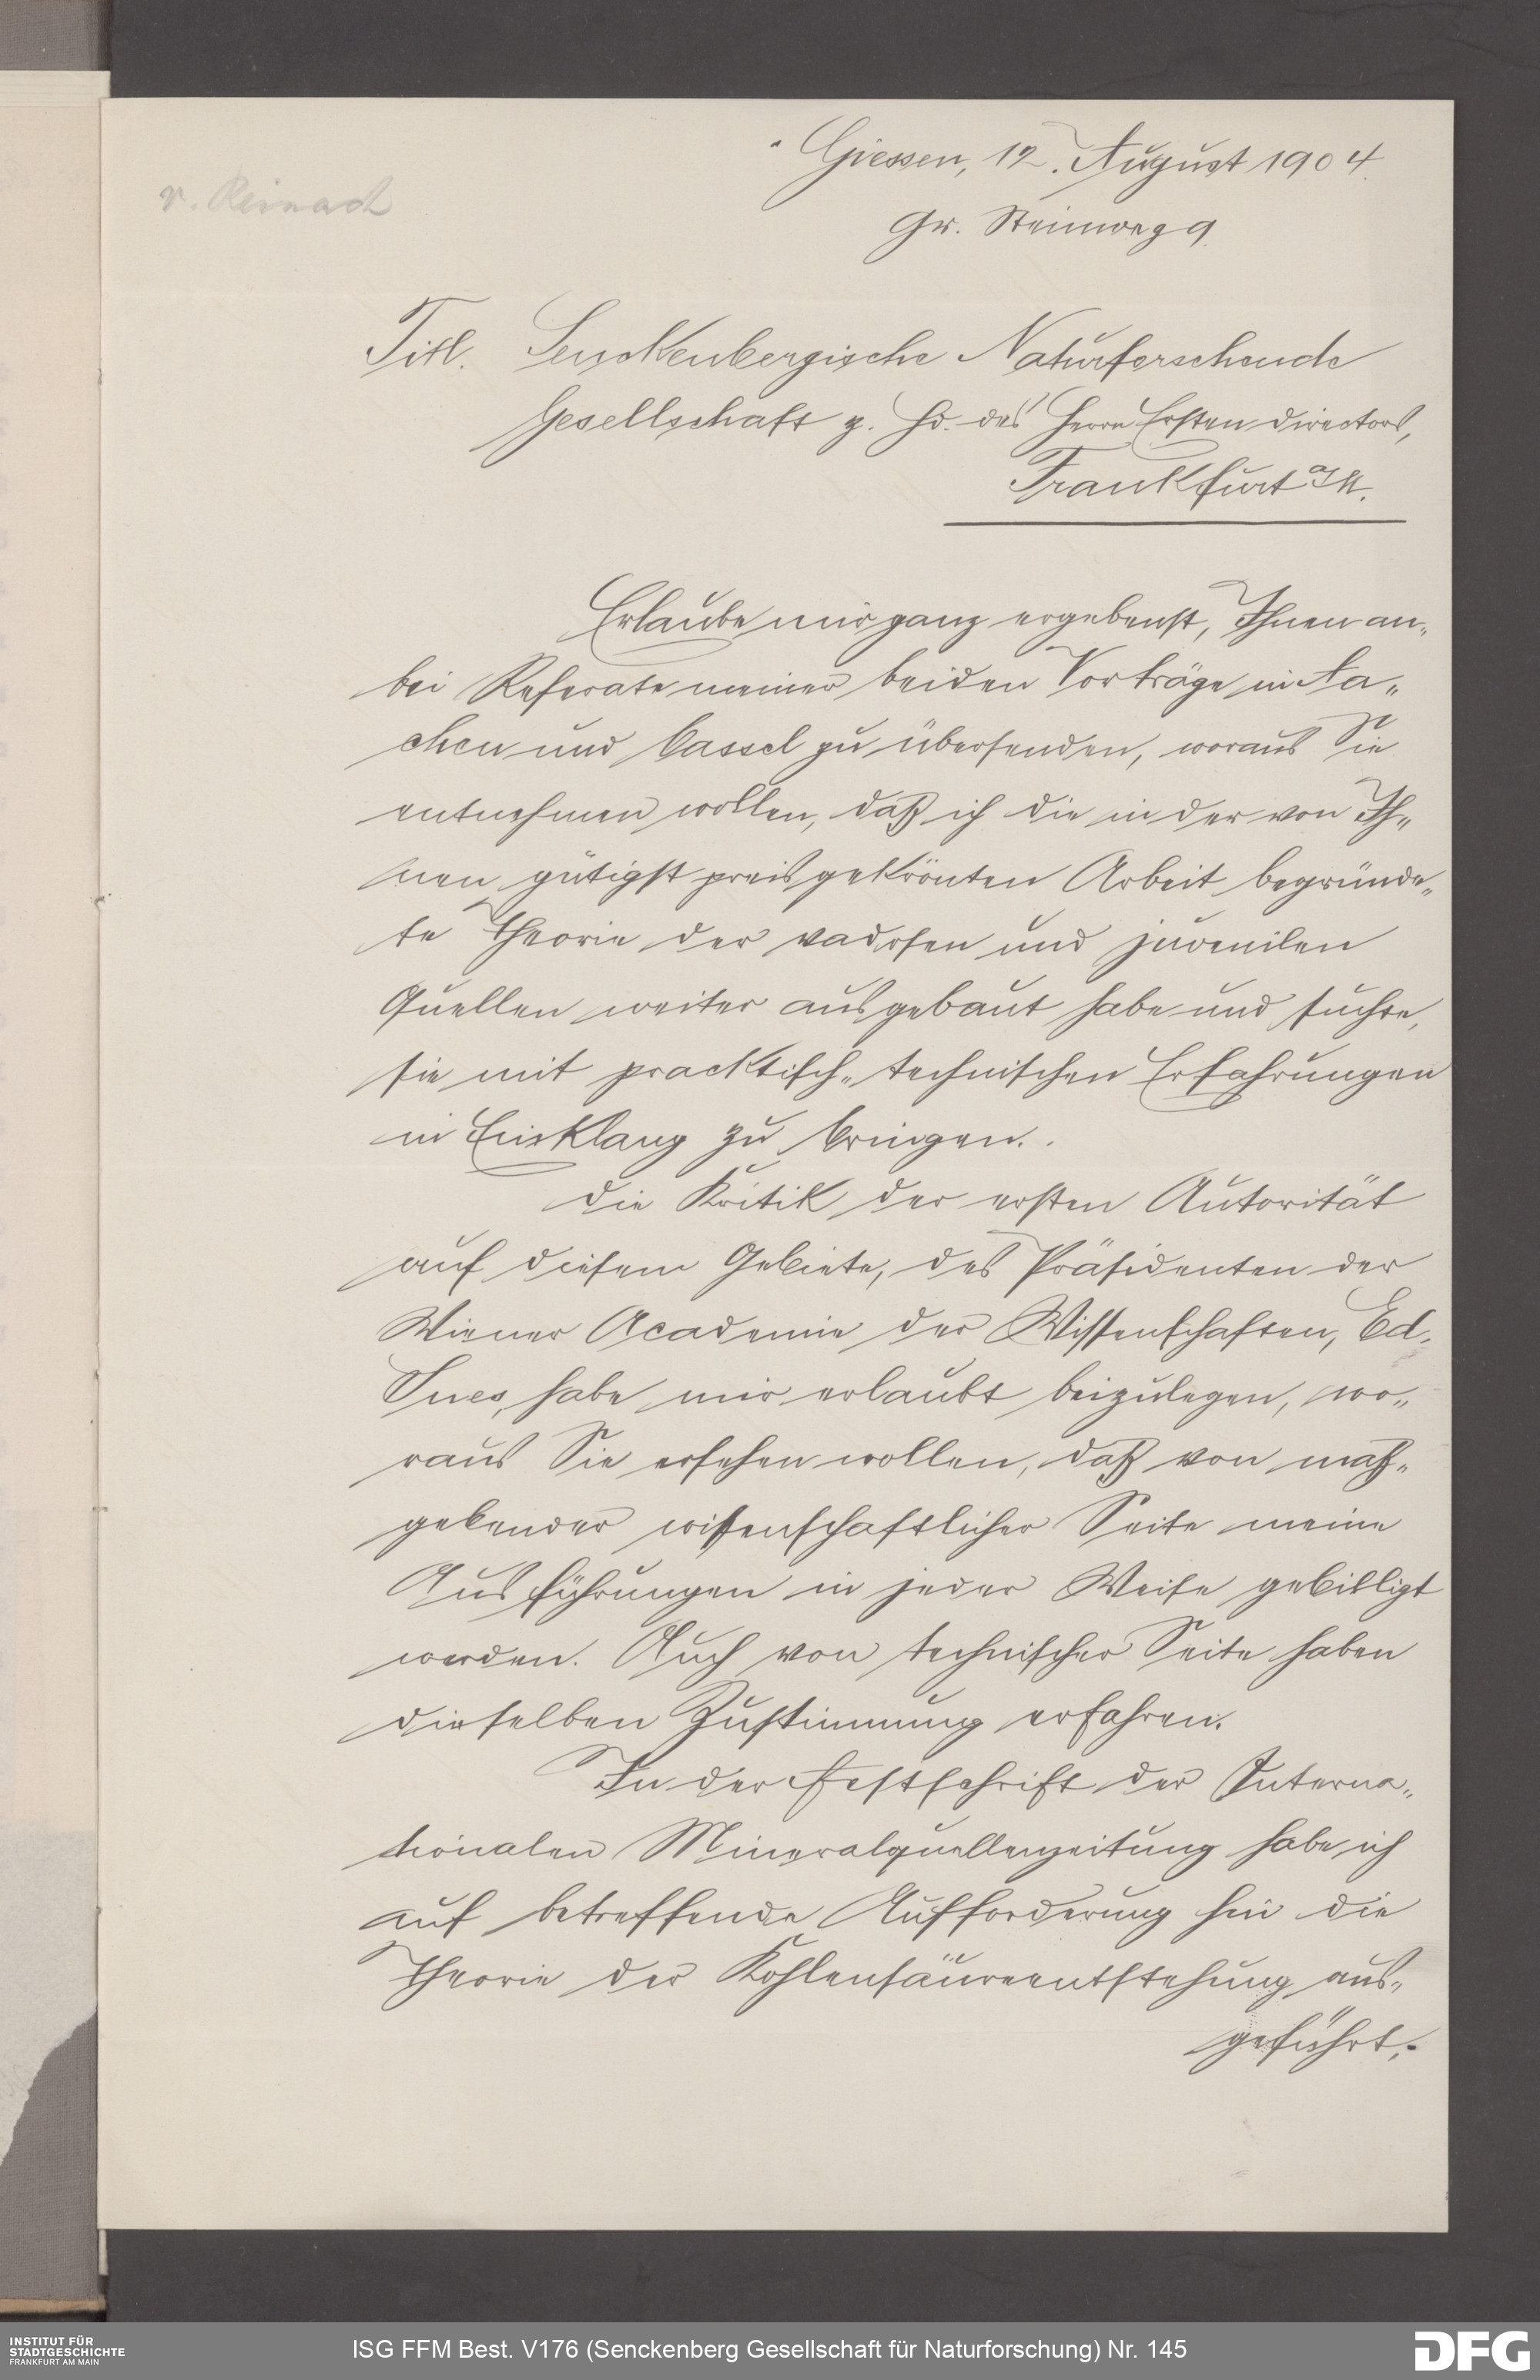 Giessen, 12. August 1904.
v. Reinach
Gr. Steinweg 9.
Titl. Senckenbergische Naturforschende
Gesellschaft z. Hd. des Herrn Ersten Directors,
Frankfurt a/M.
Erlaube mir ganz ergebenst, Ihnen an„
bei Referate meiner beiden Vorträge in Aa„
chen und Cassel zu übersenden, woraus Sie
entnehmen wollen, daß ich die in der von Ih„
nen gütigst preisgekrönten Arbeit begründe„
te Theorie der vadosen und juvenilen
Quellen weiter ausgebaut habe und suchte,
sie mit pracktisch„technischen Erfahrungen
in Einklang zu bringen.
Die Kritik der ersten Autorität
auf diesem Gebiete, des Präsidenten der
Wiener Academie der Wissenschaften, Ed.
Sues, habe mir erlaubt beizulegen, wo„
raus Sie ersehen wollen, daß von maß„
gebender wissenschaftlicher Seite meine
Ausführungen in jeder Weise gebilligt
werden. Auch von technischer Seite haben
dieselben Zustimmung erfahren.
In der Festschrift der Interna„
tionalen Mineralquellenzeitung habe ich
auf betreffende Aufforderung hin die
Theorie der Kohlensäureentstehung aus„
geführt.-
INSTITUT FÜR
STADTGESCHICHTE
FRANKFURT AM MAIN
ISG FFM Best. V176 (Senckenberg Gesellschaft für Naturforschung) Nr. 145
DFG